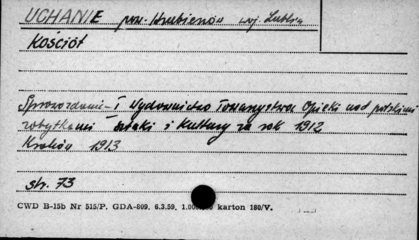 UCHANIE pow. Hrubieszów woj. Lublin
Kościół
Sprawozdanie - I Wydawnictwo Towarzystwa Opieki nad polskimi
zabytkami sztuki i kultury za rok 1912
Kraków 1913
str. 73
CWD B-15b Nr 515/P. GDA-809. 6.3.59. 1.00 karton 180/V.